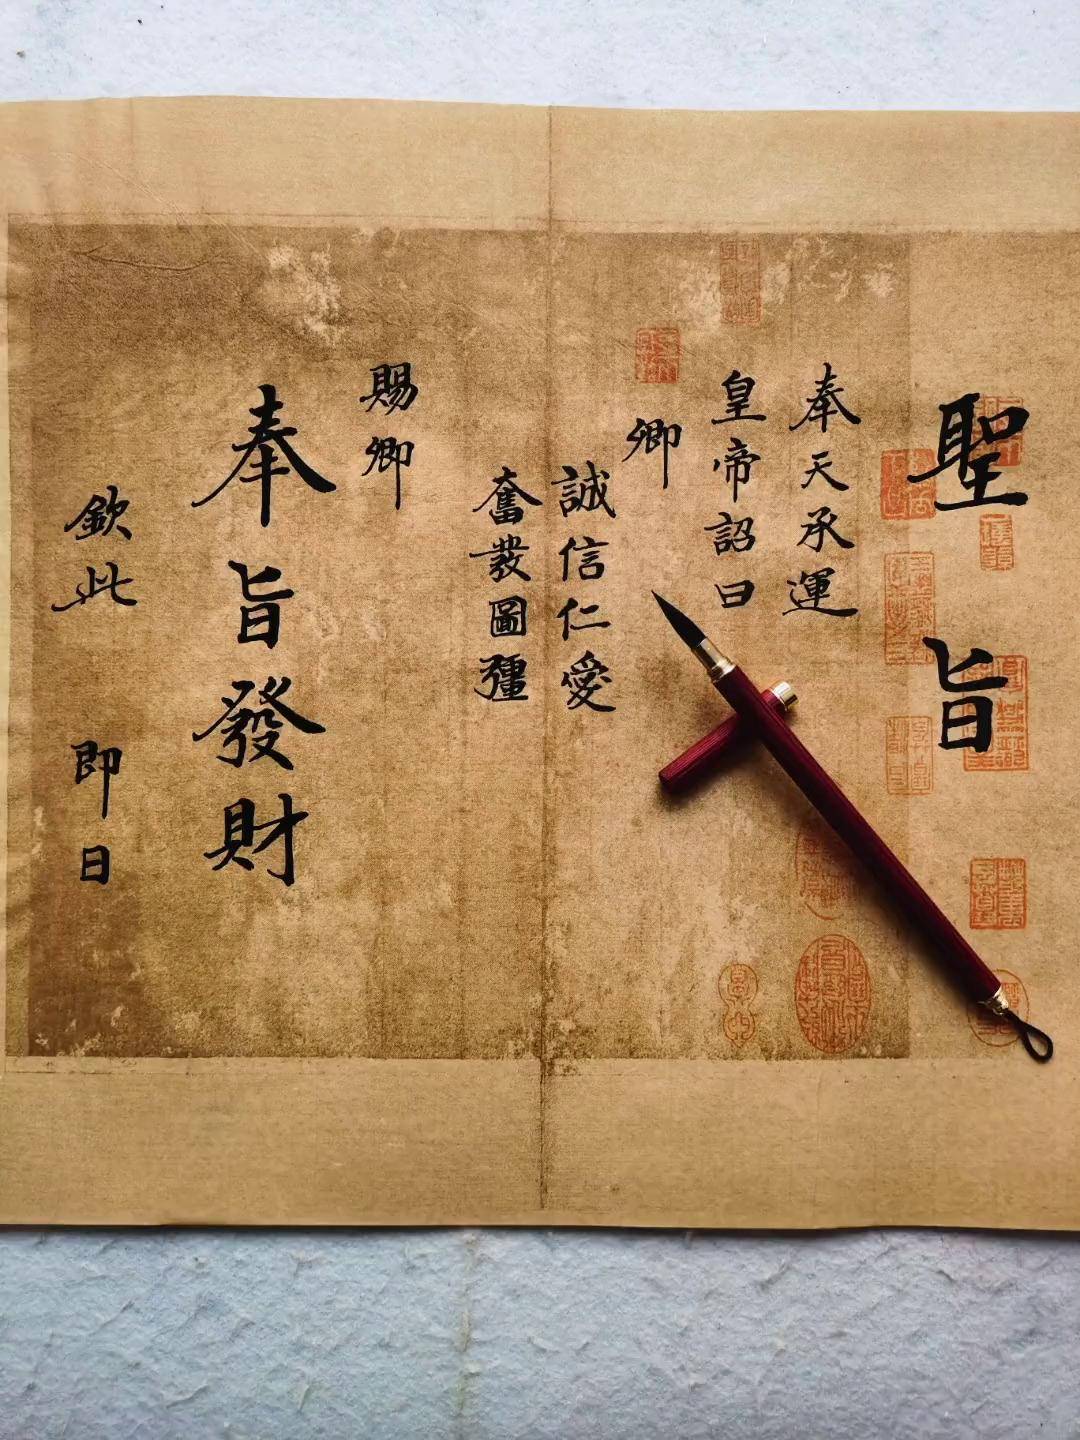 聖旨
奉天承運
皇帝詔曰
卿
誠信仁愛
奮發圖彊
賜卿
奉旨發財
欽此 即日